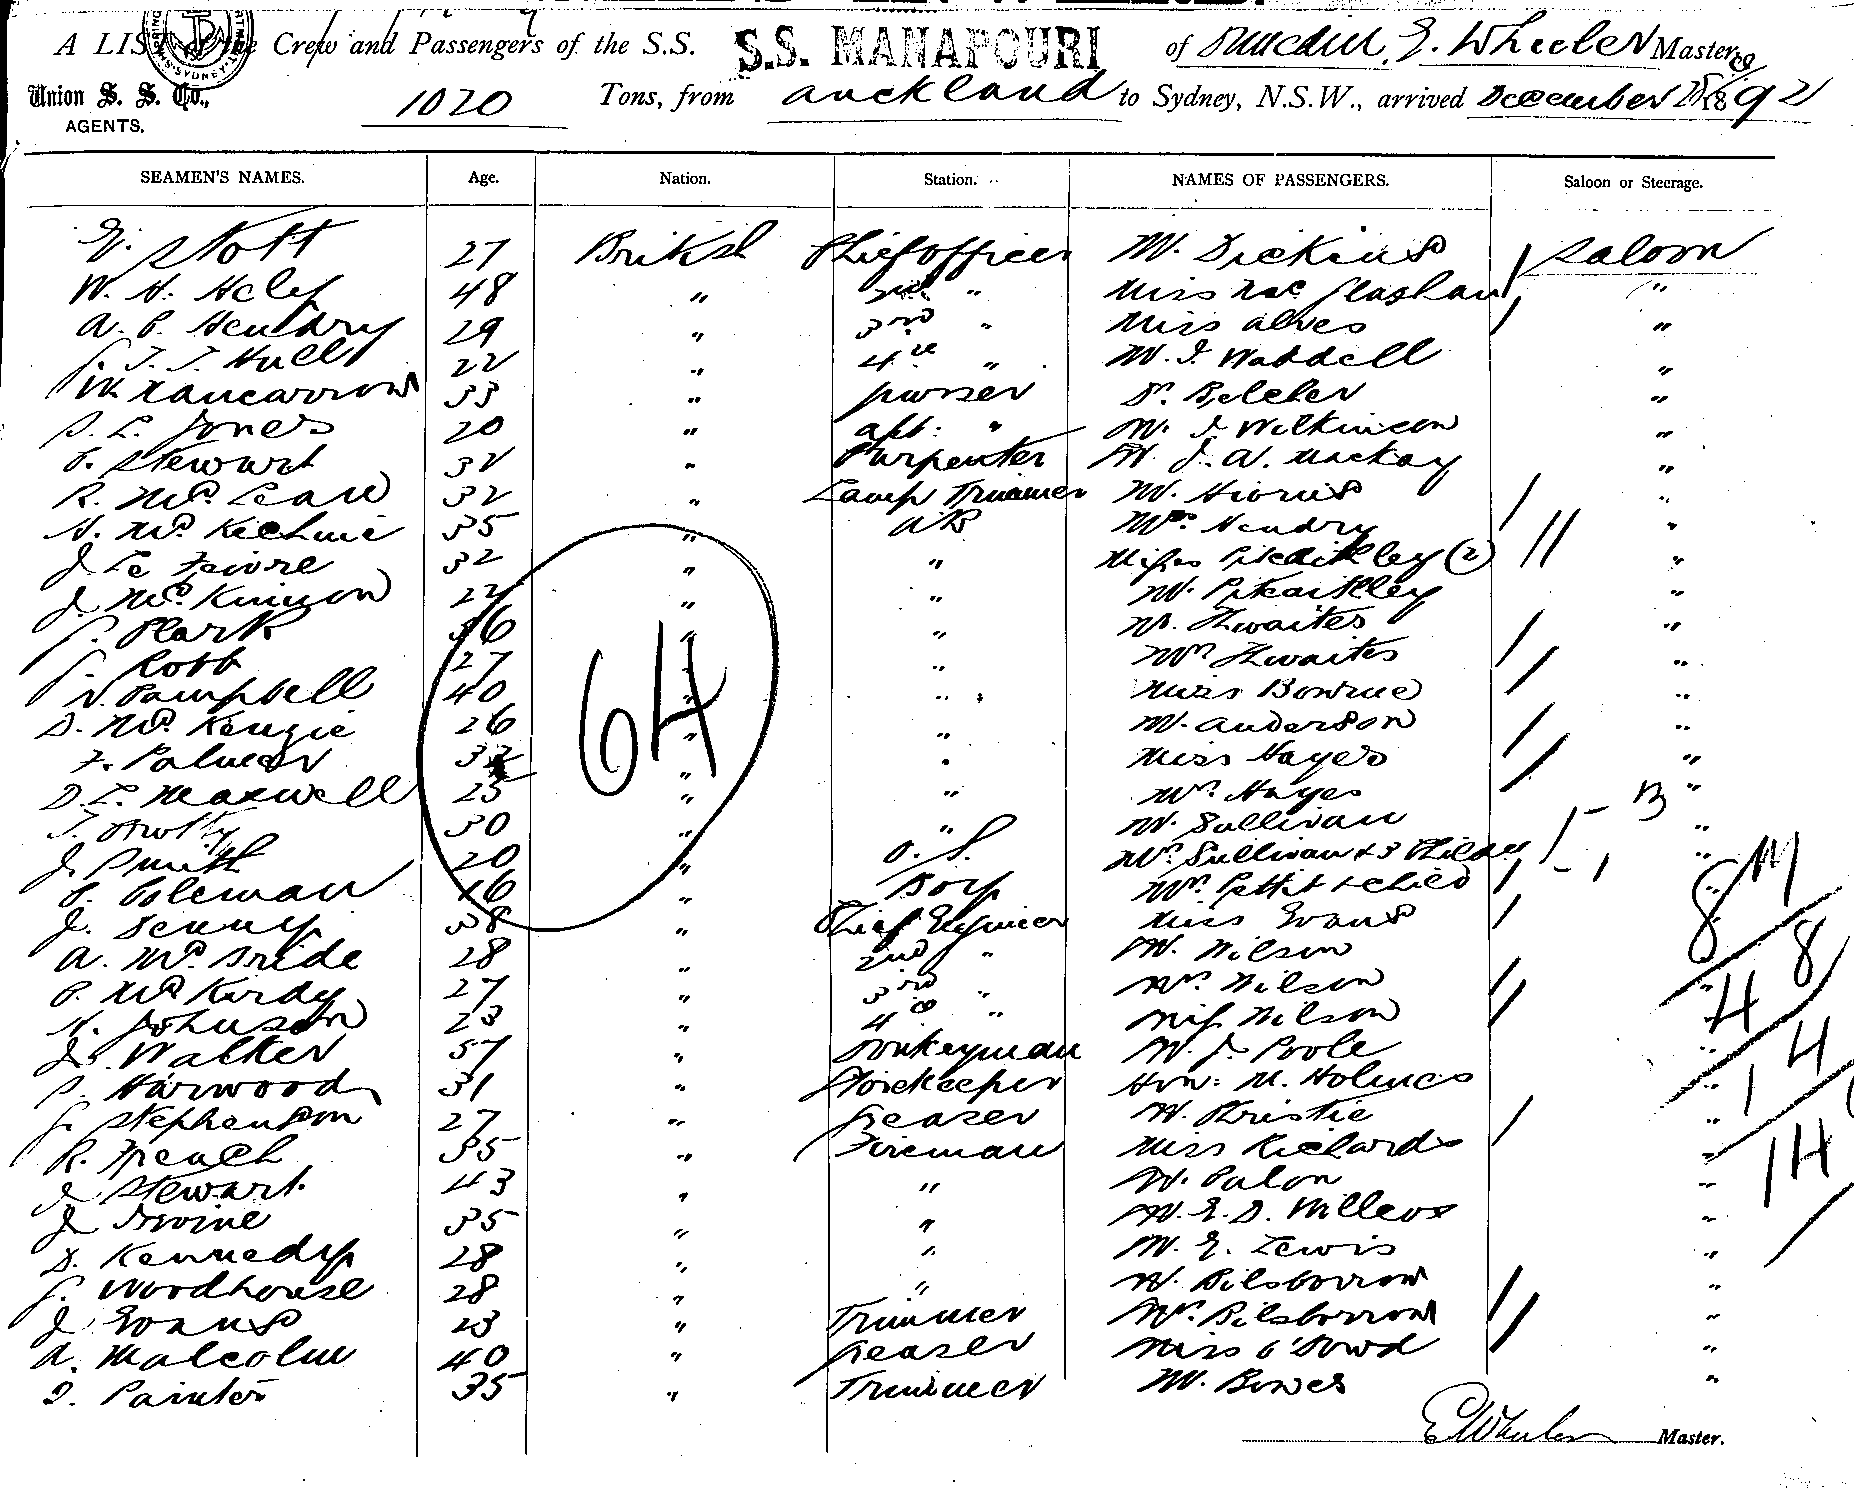 A LIST of the Crew and Passengers of the S.S. S.S. MANAPOURI of Duncan, E. Wheeler Master,
Union S. S. Co., 1020 Tons, from Auckland to Sydney, N.S.W., arrived December 1892
AGENTS.
SEAMEN'S NAMES. Age. Nation. Station. NAMES OF PASSENGERS. Saloon or Steerage.
E. Stott 27 British Chief Officer Mr. Dickins Saloon
W. H. Hely 48 " 2nd " Miss "
A. P. Hendry 29 " 3rd " Miss Alves "
J. T. Hull 22 " 4th " Mr. J. Waddell "
W. Nancarrow 33 " purser Belcher "
S. L. Jones 20 " asst: " Mr. J. Wilkinson "
P. Stewart 32 " Carpenter Mr. J. A. Mackay "
R. McLean 32 " Lamp Trimmer Mr. Hiorns "
H. McKechnie 35 " AB Mrs Hendry "
J. Le Feivre 32 " " Misses Pitcaithley (2) "
J. McKinnon 22 " " Mr. Pitcaithley "
Clark 36 " " Mr. Thwaites "
Robb 27 " " Mrs Thwaites "
N. Campbell 40 " " Miss Bonrue "
D. McKenzie 26 " " Mr. Anderson "
F. Palmer " " Miss Hayes "
D. L. Maxwell 25 " " Mrs. Hayes "
T. 30 " " Mr. Sullivan "
J. Smith 20 " O. S. Mrs. Sullivan & 3 Childn "
P. Coleman 16 " Boy Mrs Pettit & child "
J. Denny 38 " Chief Engineer Miss Evans
A. McBride 28 " 2nd " Mr. Nilson
P. McKirdy 27 " 3rd " Mrs. Nilson "
N. Johnson 23 " 4th " Miss Nilson
J. Walker 57 " Donkeyman Mr. J. Poole "
Harwood 31 " Storekeeper Hon: M. Holmes "
G. Stephenson 27 " Greaser Mr. Christie "
R. French 35 " Fireman Miss Richards "
J. Stewart 43 " " Mr. "
J. Irvine 35 " " Mr. E. D. "
D. Kennedy 28 " " Mr. E. Lewis "
G. Woodhouse 28 " " Mr. Bilsborrow "
J. Evans 23 " Trimmer Mrs. Bilsborrow "
A. Malcolm 40 " Greaser Miss O'Dowd "
Painter 35 " Trimmer Mr. Bowes "
64
E Wheeler Master.
13
1
8
4
1
14
M
8
4